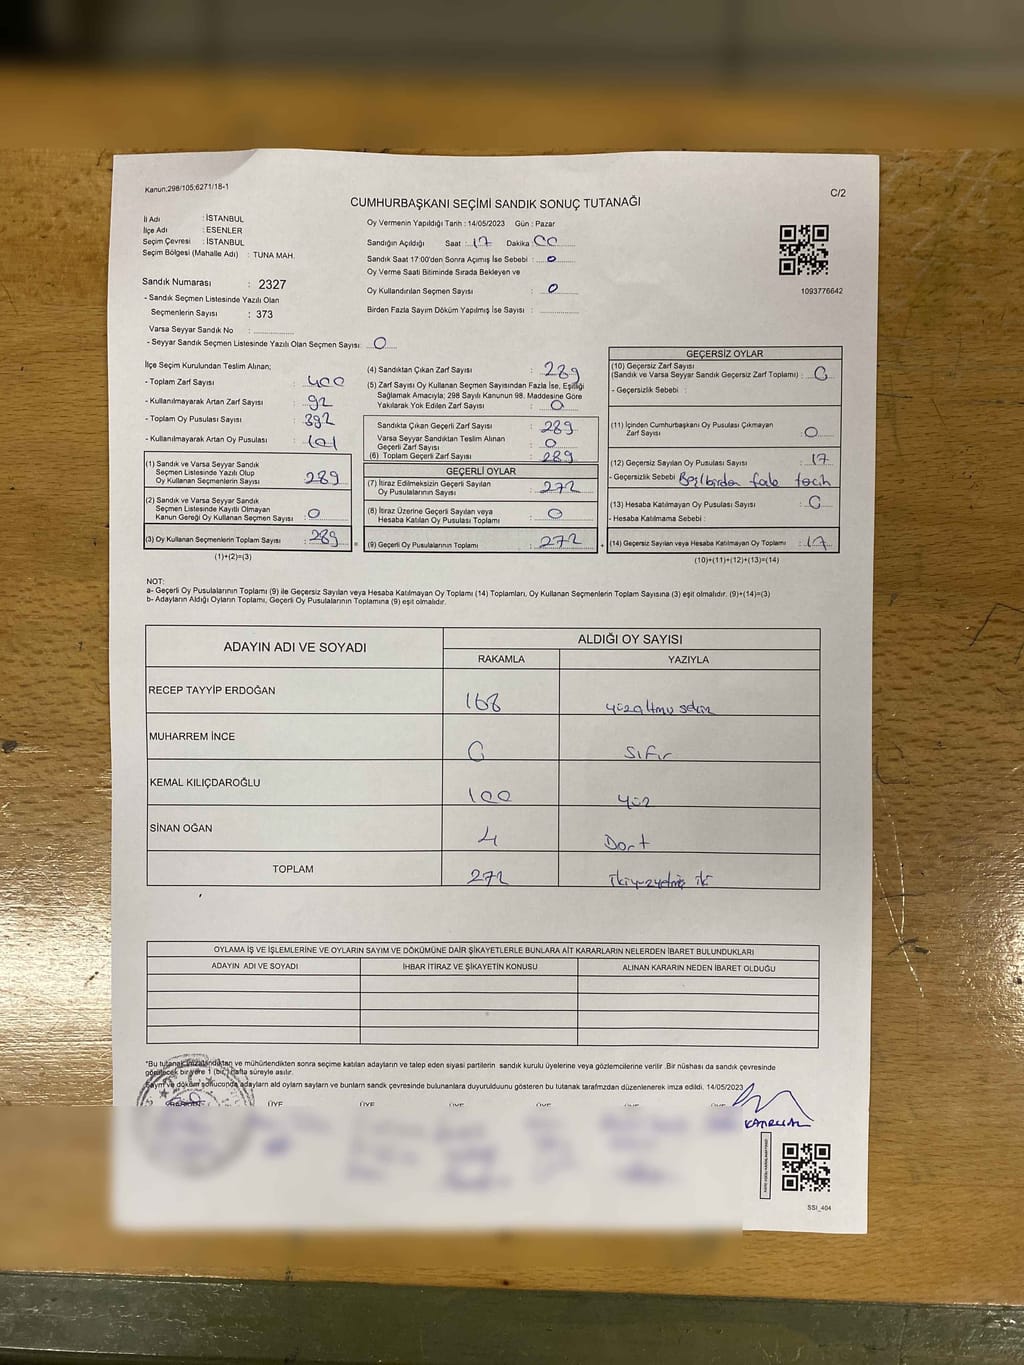 Kanun:298/105;6271/18-1
C/2
CUMHURBAŞKANI SEÇİMİ SANDIK SONUÇ TUTANAĞI
İl Adı : İSTANBUL
İlçe Adı : ESENLER
Seçim Çevresi : İSTANBUL
Seçim Bölgesi (Mahalle Adı) : TUNA MAH.
Sandık Numarası : 2327
- Sandık Seçmen Listesinde Yazılı Olan
Seçmenlerin Sayısı : 373
Varsa Seyyar Sandık No :
- Seyyar Sandık Seçmen Listesinde Yazılı Olan Seçmen Sayısı: 0
Oy Vermenin Yapıldığı Tarih : 14/05/2023 Gün : Pazar
Sandığın Açıldığı Saat : 17 Dakika : 00
Sandık Saat 17:00'den Sonra Açımış İse Sebebi : 0
Oy Verme Saati Bitiminde Sırada Bekleyen ve
Oy Kullandırılan Seçmen Sayısı : 0
Birden Fazla Sayım Döküm Yapılmış İse Sayısı :
1093776642
İlçe Seçim Kurulundan Teslim Alınan;
- Toplam Zarf Sayısı : 400
- Kullanılmayarak Artan Zarf Sayısı : 92
- Toplam Oy Pusulası Sayısı : 392
- Kullanılmayarak Artan Oy Pusulası : 101
(1) Sandık ve Varsa Seyyar Sandık
Seçmen Listesinde Yazılı Olup
Oy Kullanan Seçmenlerin Sayısı : 289
(2) Sandık ve Varsa Seyyar Sandık
Seçmen Listesinde Kayıtlı Olmayan
Kanun Gereği Oy Kullanan Seçmen Sayısı : 0
(3) Oy Kullanan Seçmenlerin Toplam Sayısı : 289
(1)+(2)=(3)
(4) Sandıktan Çıkan Zarf Sayısı : 289
(5) Zarf Sayısı Oy Kullanan Seçmen Sayısından Fazla İse, Eşitliği
Sağlamak Amacıyla; 298 Sayılı Kanunun 98. Maddesine Göre
Yakılarak Yok Edilen Zarf Sayısı : 0
Sandıkta Çıkan Geçerli Zarf Sayısı : 289
Varsa Seyyar Sandıktan Teslim Alınan
Geçerli Zarf Sayısı : 0
(6) Toplam Geçerli Zarf Sayısı : 289
GEÇERLİ OYLAR
(7) İtiraz Edilmeksizin Geçerli Sayılan
Oy Pusulalarının Sayısı : 272
(8) İtiraz Üzerine Geçerli Sayılan veya
Hesaba Katılan Oy Pusulası Toplamı : 0
(9) Geçerli Oy Pusulalarının Toplamı : 272
GEÇERSİZ OYLAR
(10) Geçersiz Zarf Sayısı
(Sandık ve Varsa Seyyar Sandık Geçersiz Zarf Toplamı) : 0
- Geçersizlik Sebebi :
(11) İçinden Cumhurbaşkanı Oy Pusulası Çıkmayan
Zarf Sayısı : 0
(12) Geçersiz Sayılan Oy Pusulası Sayısı : 17
- Geçersizlik Sebebi
(13) Hesaba Katılmayan Oy Pusulası Sayısı : 0
- Hesaba Katılmama Sebebi :
(14) Geçersiz Sayılan veya Hesaba Katılmayan Oy Toplamı : 17
(10)+(11)+(12)+(13)=(14)
NOT:
a- Geçerli Oy Pusulalarının Toplamı (9) ile Geçersiz Sayılan veya Hesaba Katılmayan Oy Toplamı (14) Toplamları, Oy Kullanan Seçmenlerin Toplam Sayısına (3) eşit olmalıdır. (9)+(14)=(3)
b- Adayların Aldığı Oyların Toplamı, Geçerli Oy Pusulalarının Toplamına (9) eşit olmalıdır.
ADAYIN ADI VE SOYADI
ALDIĞI OY SAYISI
RAKAMLA YAZIYLA
RECEP TAYYİP ERDOĞAN 168 yüzaltmış sekiz
MUHARREM İNCE 0 Sıfır
KEMAL KILIÇDAROĞLU 100 yüz
SİNAN OĞAN 4 Dört
TOPLAM 272 ikiyüzyetmiş iki
OYLAMA İŞ VE İŞLEMLERİNE VE OYLARIN SAYIM VE DÖKÜMÜNE DAİR ŞİKAYETLERLE BUNLARA AİT KARARLARIN NELERDEN İBARET BULUNDUKLARI
ADAYIN ADI VE SOYADI İHBAR İTİRAZ VE ŞİKAYETİN KONUSU ALINAN KARARIN NEDEN İBARET OLDUĞU
*Bu tutanak imzalandıktan ve mühürlendikten sonra seçime katılan adayların ve talep eden siyasi partilerin sandık kurulu üyelerine veya gözlemcilerine verilir .Bir nüshası da sandık çevresinde
görülecek bir yere 1 (bir) hafta süreyle asılır.
Sayım ve döküm sonuconda adayların ald oyların sayların ve bunlarım sandk çevresinde bulunanlara duyurulduunu gösteren bu tutanak tarafmzdan düzenlenerek imza edildi. 14/05/2023
ÜYE ÜYE ÜYE ÜYE ÜYE ÜYE
SSİ_404